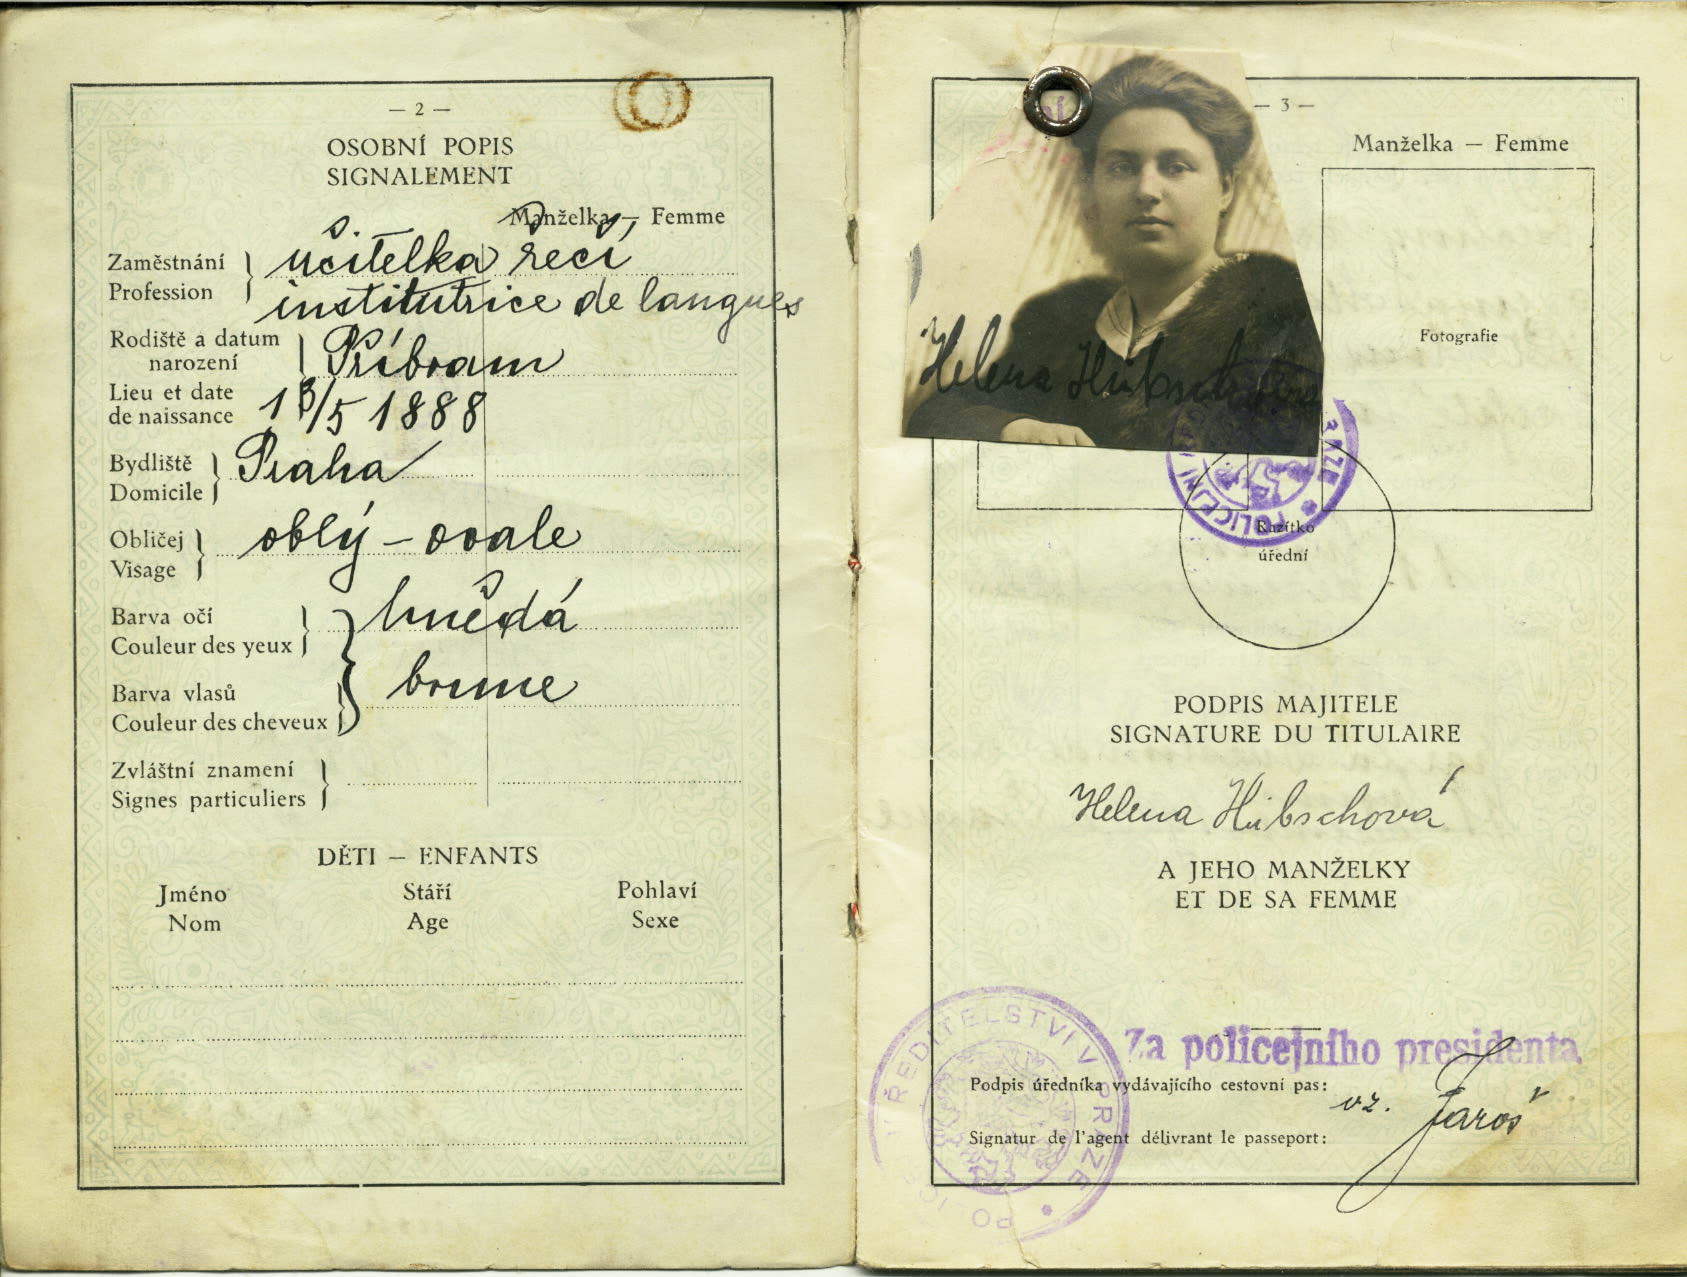 — 2 —
OSOBNÍ POPIS
SIGNALEMENT
Manželka — Femme
Zaměstnání
Profession
učitelka řečí,
institutrice de langues
Rodiště a datum
narození
Lieu et date
de naissance
Příbram
13/5 1888
Bydliště
Domicile
Praha
Obličej
Visage
oblý – ovale
Barva očí
Couleur des yeux
hnědá
Barva vlasů
Couleur des cheveux
brune
Zvláštní znamení
Signes particuliers
DĚTI — ENFANTS
Jméno Stáří Pohlaví
Nom Age Sexe
— 3 —
Manželka — Femme
Fotografie
Helena Hübschová
Razítko
úřední
PODPIS MAJITELE
SIGNATURE DU TITULAIRE
Helena Hübschová
A JEHO MANŽELKY
ET DE SA FEMME
POLICEJNÍ ŘEDITELSTVÍ V PRAZE
Za policejního presidenta.
Podpis úředníka vydávajícího cestovní pas:
vz. Jaroš
Signatur de l'agent délivrant le passeport: